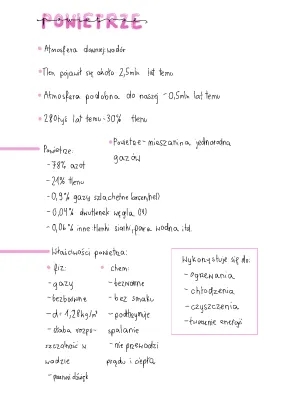 POWIETRZE
• Atmosfera dawniej: wodór
• Tlen pojawił się około 2,5mln lat temu
• Atmosfera podobna do naszej - 0,5mln lat temu
• 280tyś lat temu - 30% tlenu
• Powietrze - mieszanina jednorodna
gazów
Powietrze:
- 78% azot
- 21% tlenu
- 0,9% gazy szlachetne
- 0,04% dwutlenek węgla
- 0,06% inne: tlenki siarki, para wodna itd.
Właściwości powietrza:
• fiz:
- gazy
- bezbarwne
- d = 1,28kg/m³
- słaba rozpu-
szczalność w
wodzie
- przenosi dźwięk
• chem:
- bezwonne
- bez smaku
- podtrzymuje
spalanie
- nie przewodzi
prądu i ciepła
Wykorzystuje się do:
- ogrzewania
- chłodzenia
- czyszczenia
- tworzenie energii